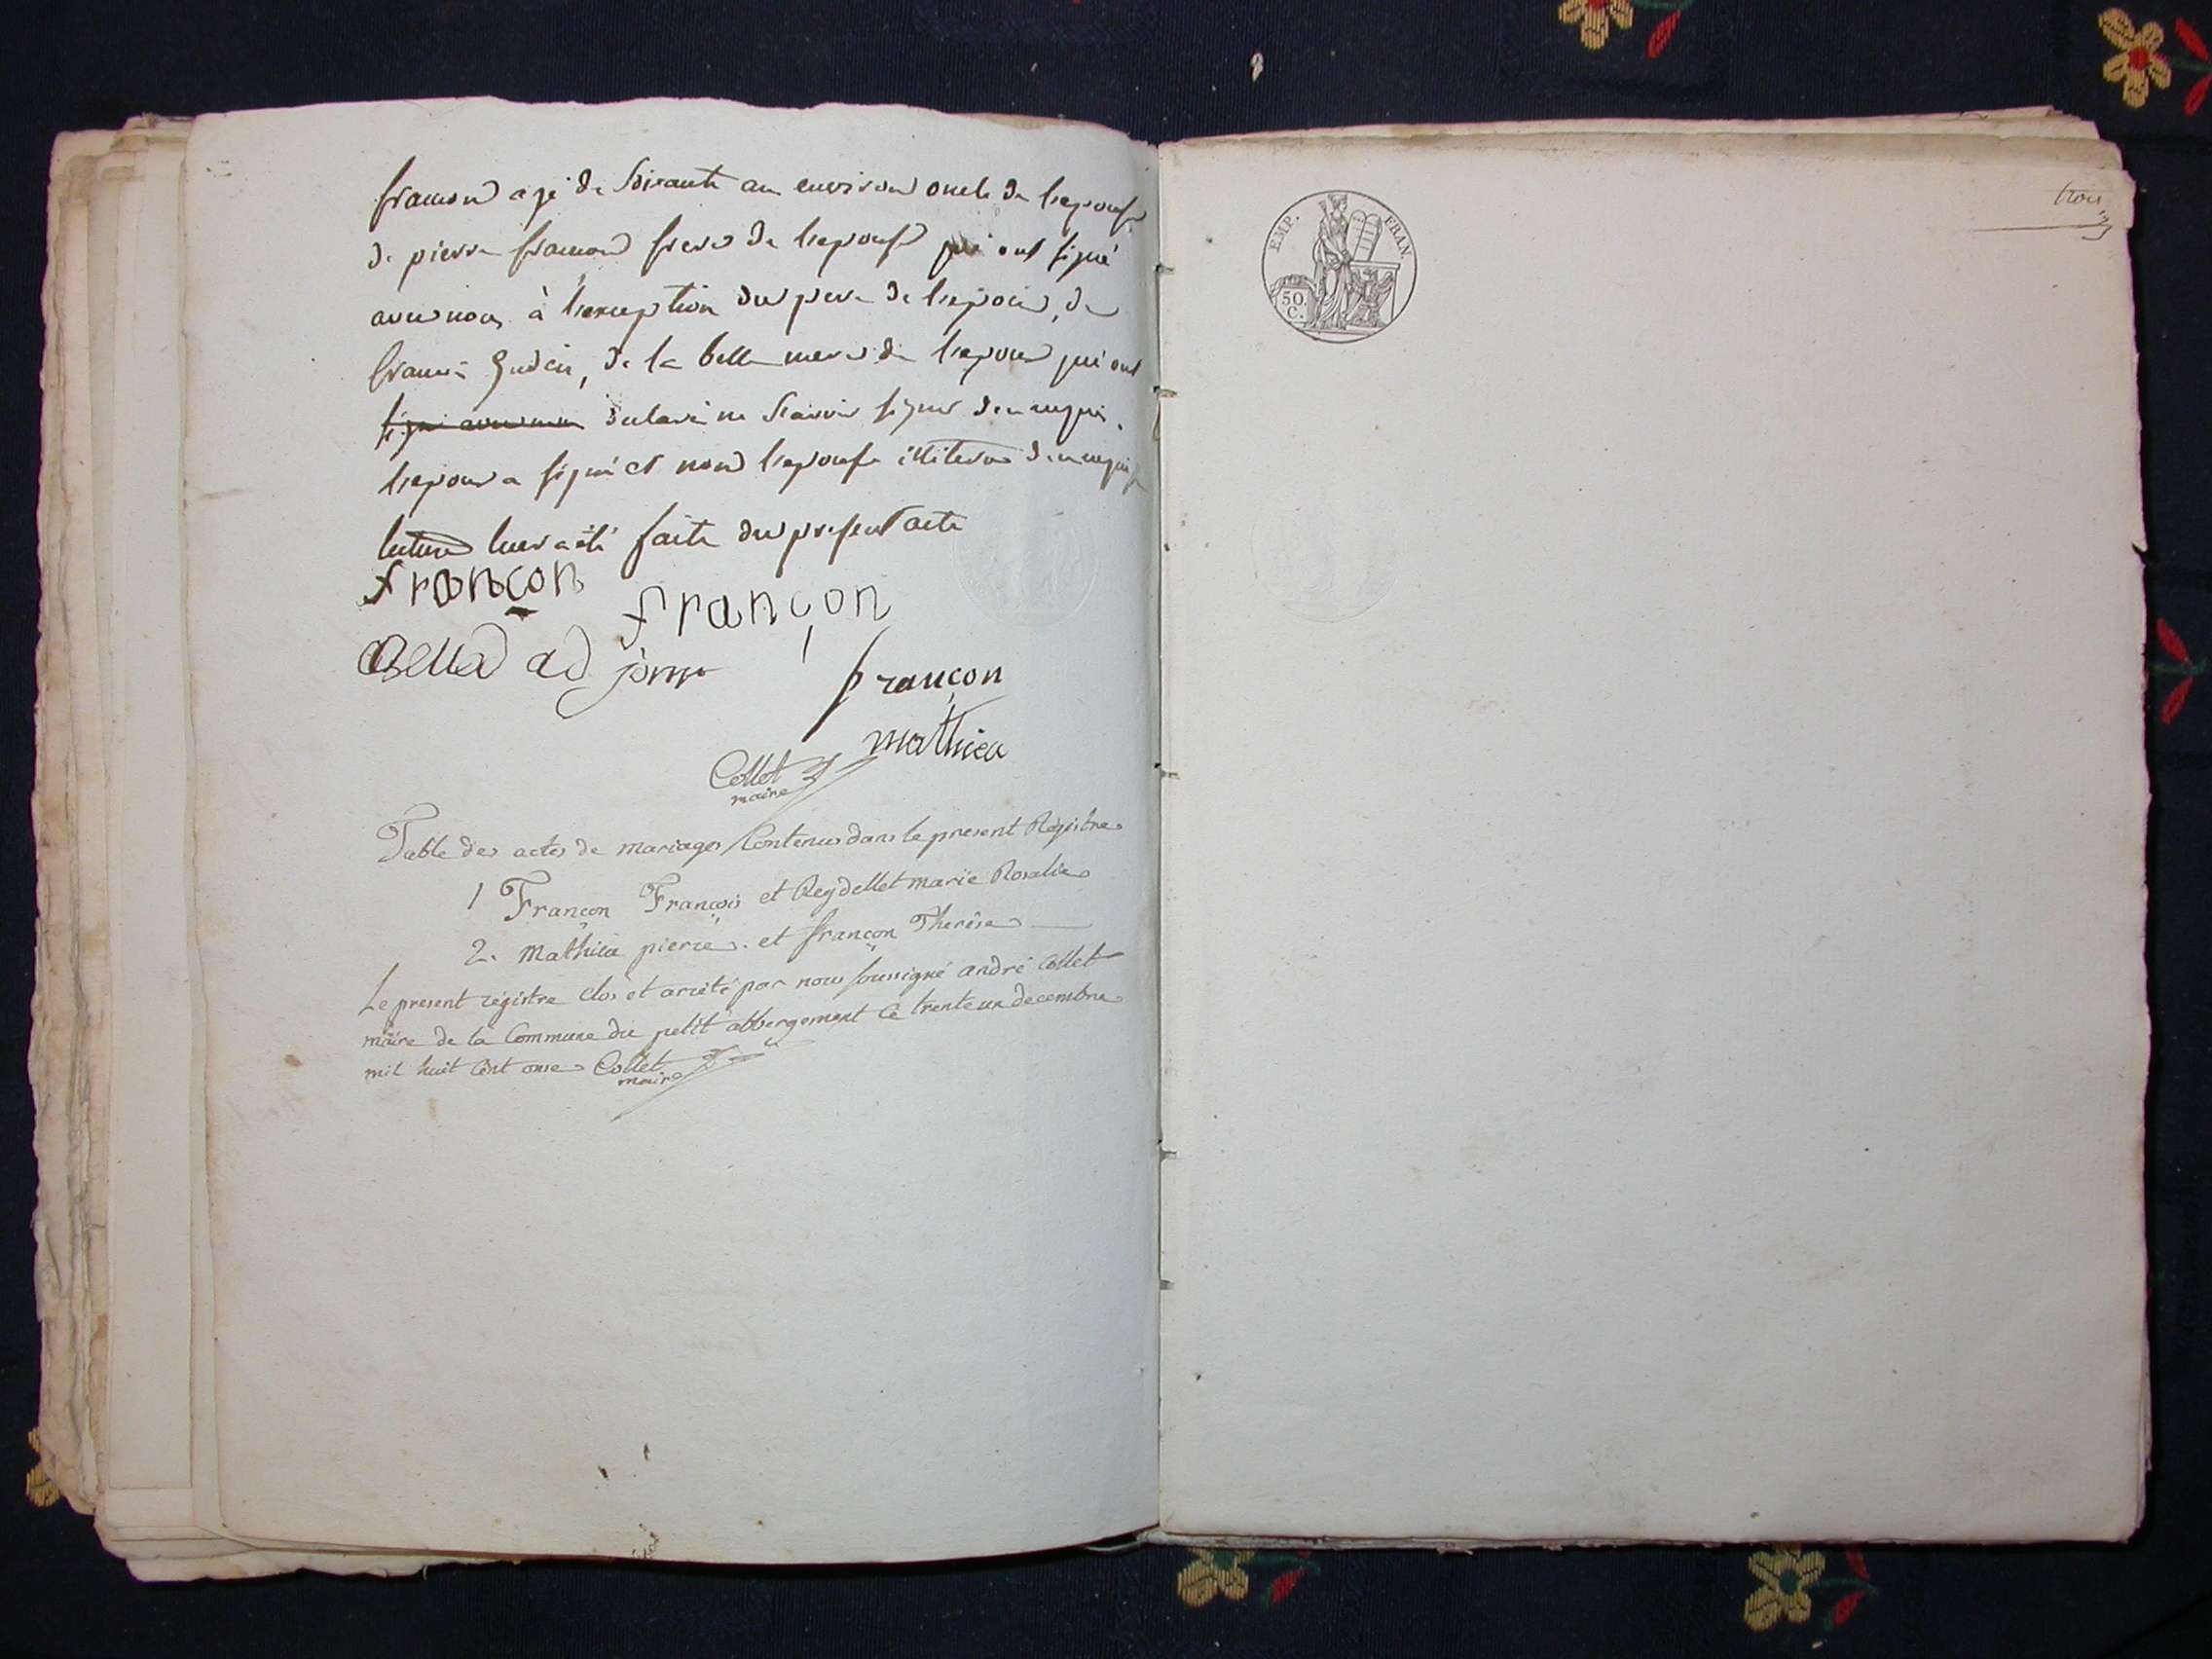 francon agé de soixante ans environ oncle de l'epouse
de pierre francon frere de l'epouse qui ont signé
avec nous à l'exception du pere de l'epoux, de
francois Gudin, de la belle mere de l'epoux qui ont
signé avec nous declaré ne scavoir signer de ce requis.
l'epoux a signé et non l'epouse illiteree de ce requise
lecture leur a été faite du present acte
françon
françon
adjoint
françon
mathieu
Collet
maire
Table des actes de mariages Contenus dans le present Régistre
1 Françon François et Reydellet marie Rosalie
2. Mathieu pierre. et françon Therèse
Le present régistre clos et arrêté par nous soussigné andré Collet
maire de la Commune du petit abbergement Ce trente un decembre
mil huit Cent onze Collet
maire
EMP. FRAN.
50.
C.
trois